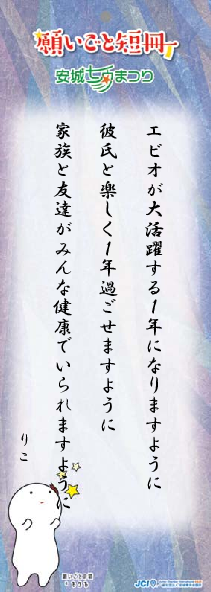 願いごと短冊
安城七夕まつり
エビオが大活躍する1年になりますように
彼氏と楽しく1年過ごせますように
家族と友達がみんな健康でいられますように
りこ
願いごと短冊
JCI